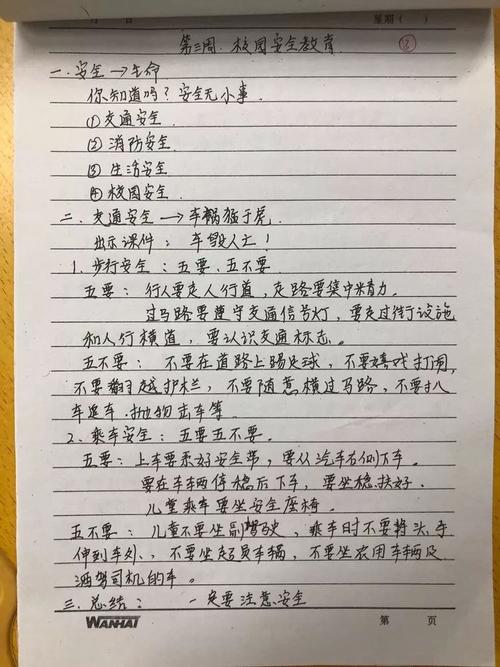 星期（ ）
第三周. 校园安全教育
②
一. 安全→生命
你知道吗？安全无小事.
① 交通安全.
② 消防安全.
③ 生活安全
④ 校园安全.
二. 交通安全→车祸猛于虎.
出示课件： 车毁人亡！
1. 步行安全：五要、五不要
五要： 行人要走人行道，走路要集中精力.
过马路要遵守交通信号灯，要走过街设施
和人行横道，要认识交通标志。
五不要： 不要在道路上踢足球，不要嬉戏打闹，
不要翻越护栏，不要随意横过马路，不要扒
车追车.抛物击车等.
2. 乘车安全：五要五不要.
五要：上车要系好安全带，要从汽车右侧下车。
要在车辆停稳后下车，要坐稳扶好.
儿童乘车要坐安全座椅.
五不要： 儿童不要坐副驾驶，乘车时不要将头手
伸到车外、不要坐超员车辆，不要坐农用车辆及
酒驾司机的车。
三. 总结： 一定要注意安全
WANHAI
第 页